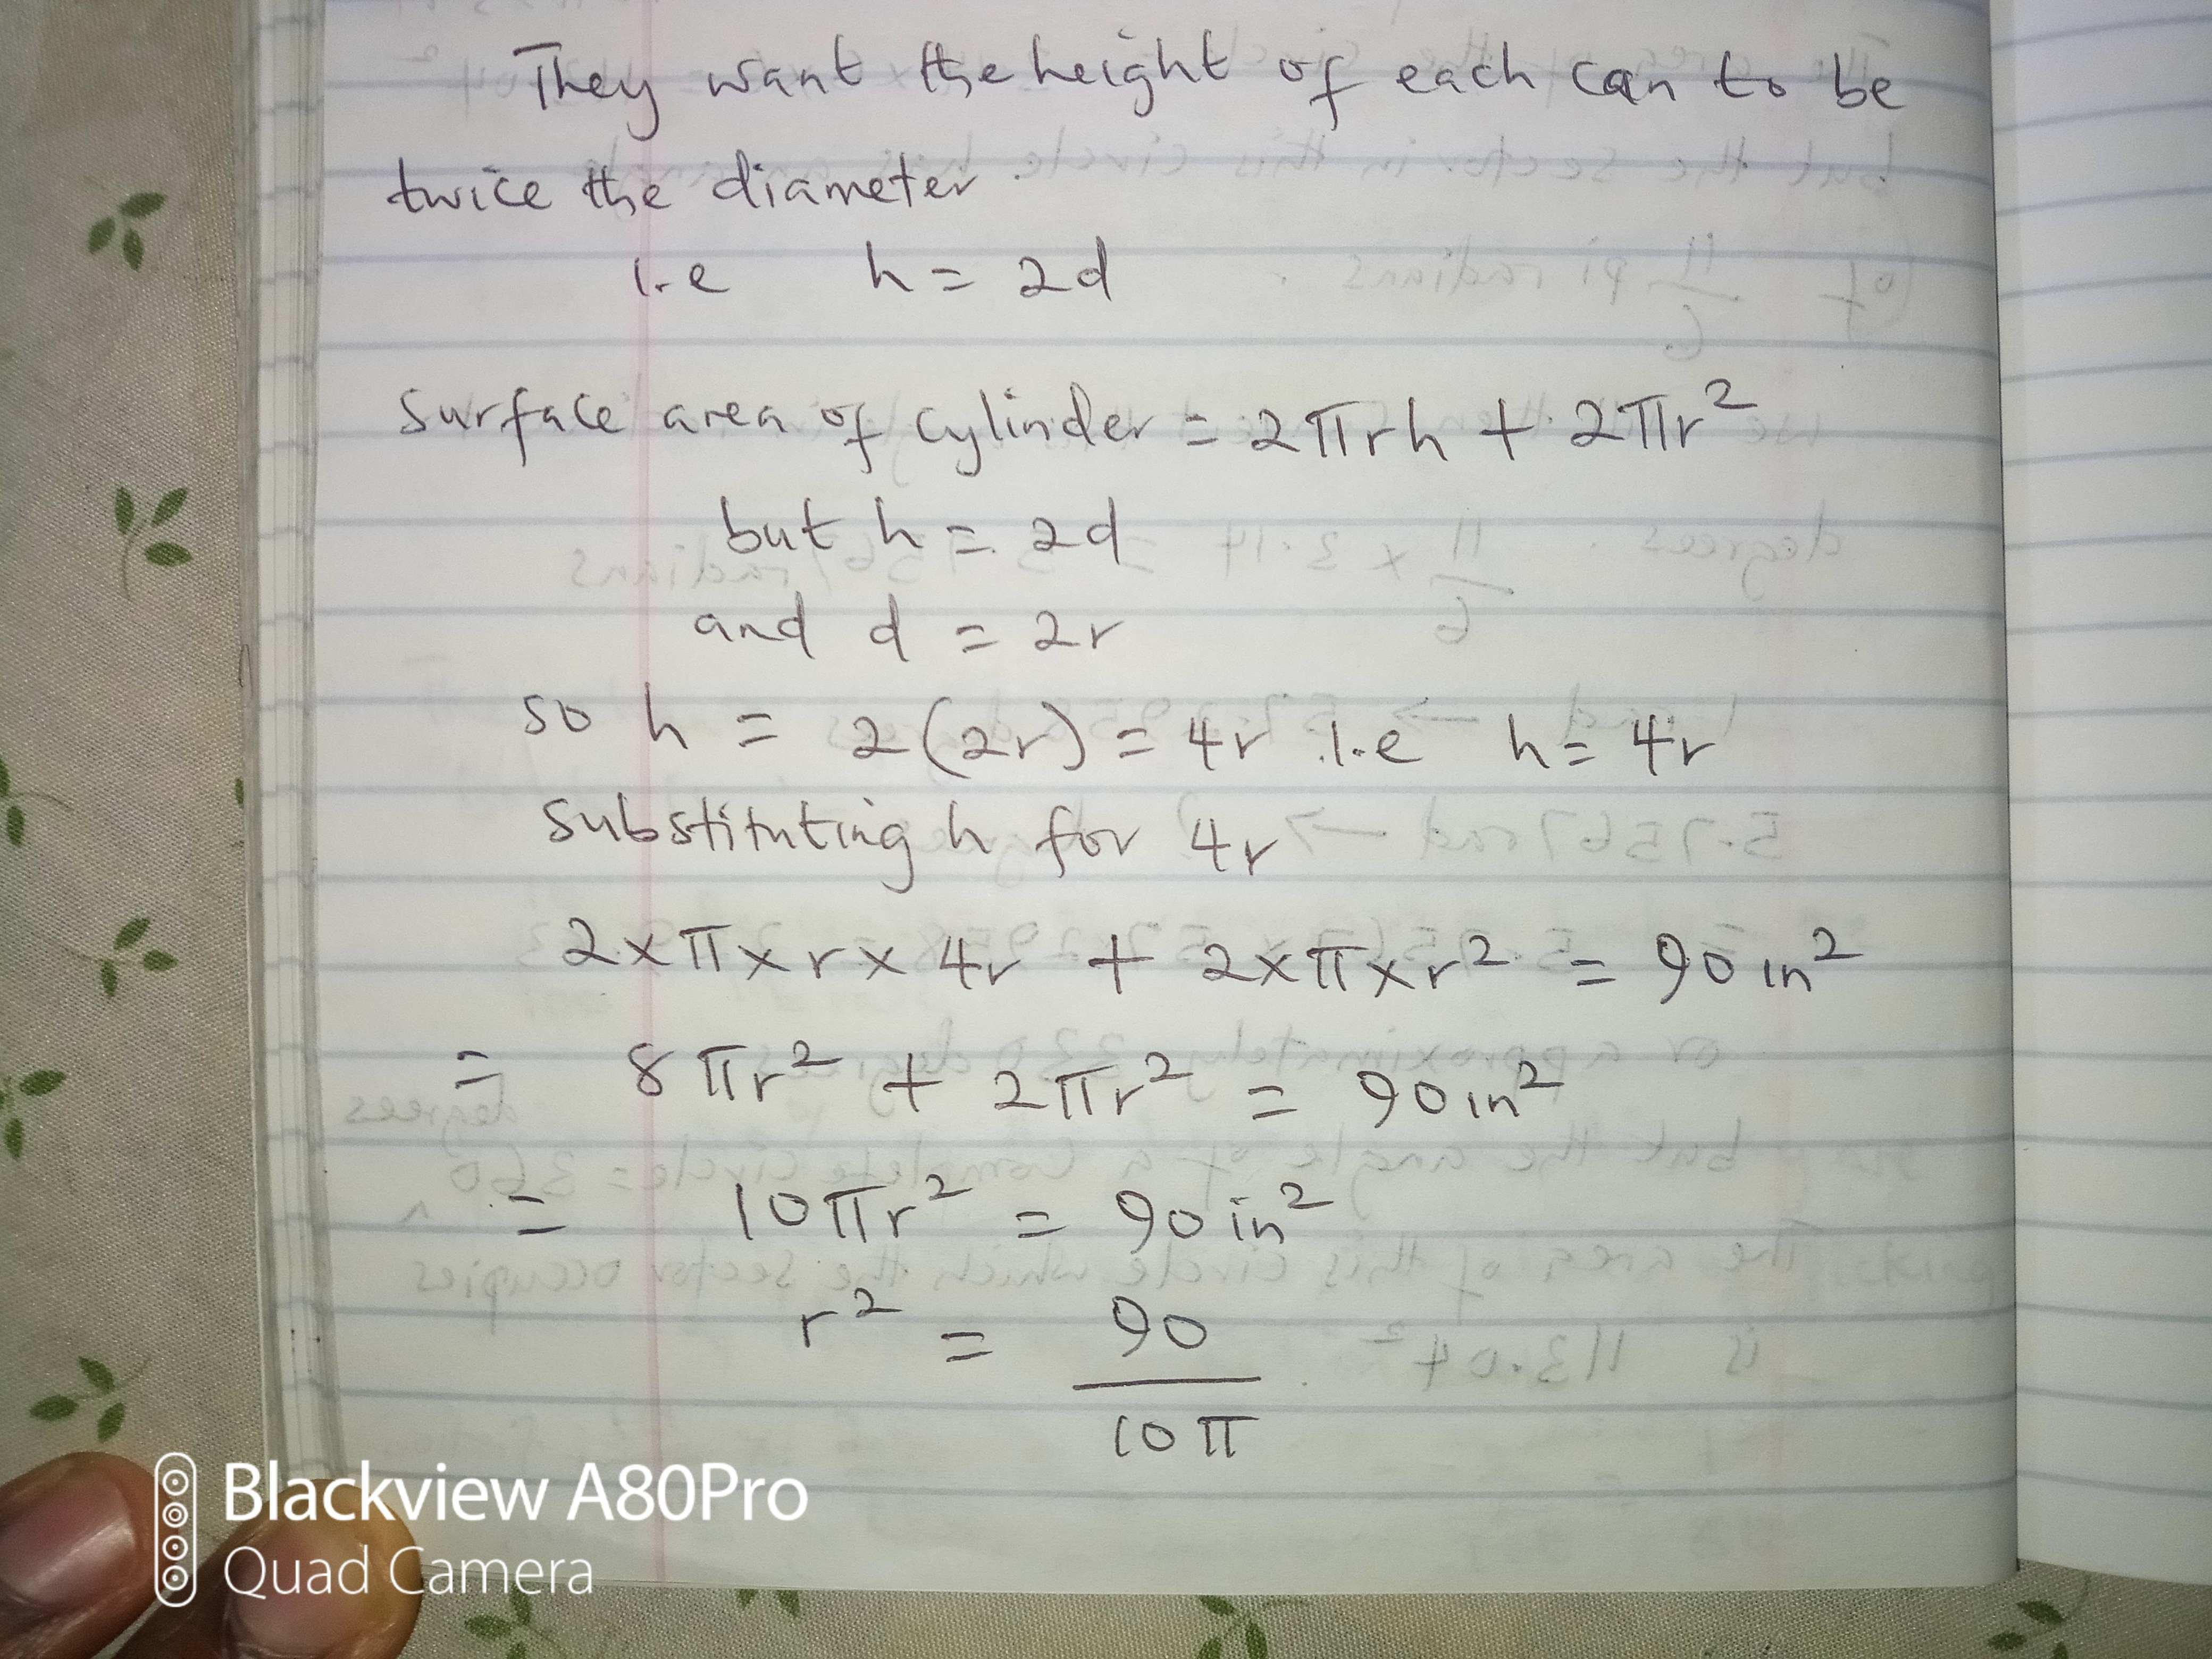 They want the height of each can to be
twice the diameter.
i.e h = 2d
Surface area of cylinder = 2πrh + 2πr²
but h = 2d
and d = 2r
so h = 2(2r) = 4r i.e h = 4r
substituting h for 4r
2×π×r×4r + 2×π×r² = 90 in²
= 8πr² + 2πr² = 90 in²
= 10πr² = 90 in²
r² = 90
10π
Blackview A80Pro
Quad Camera